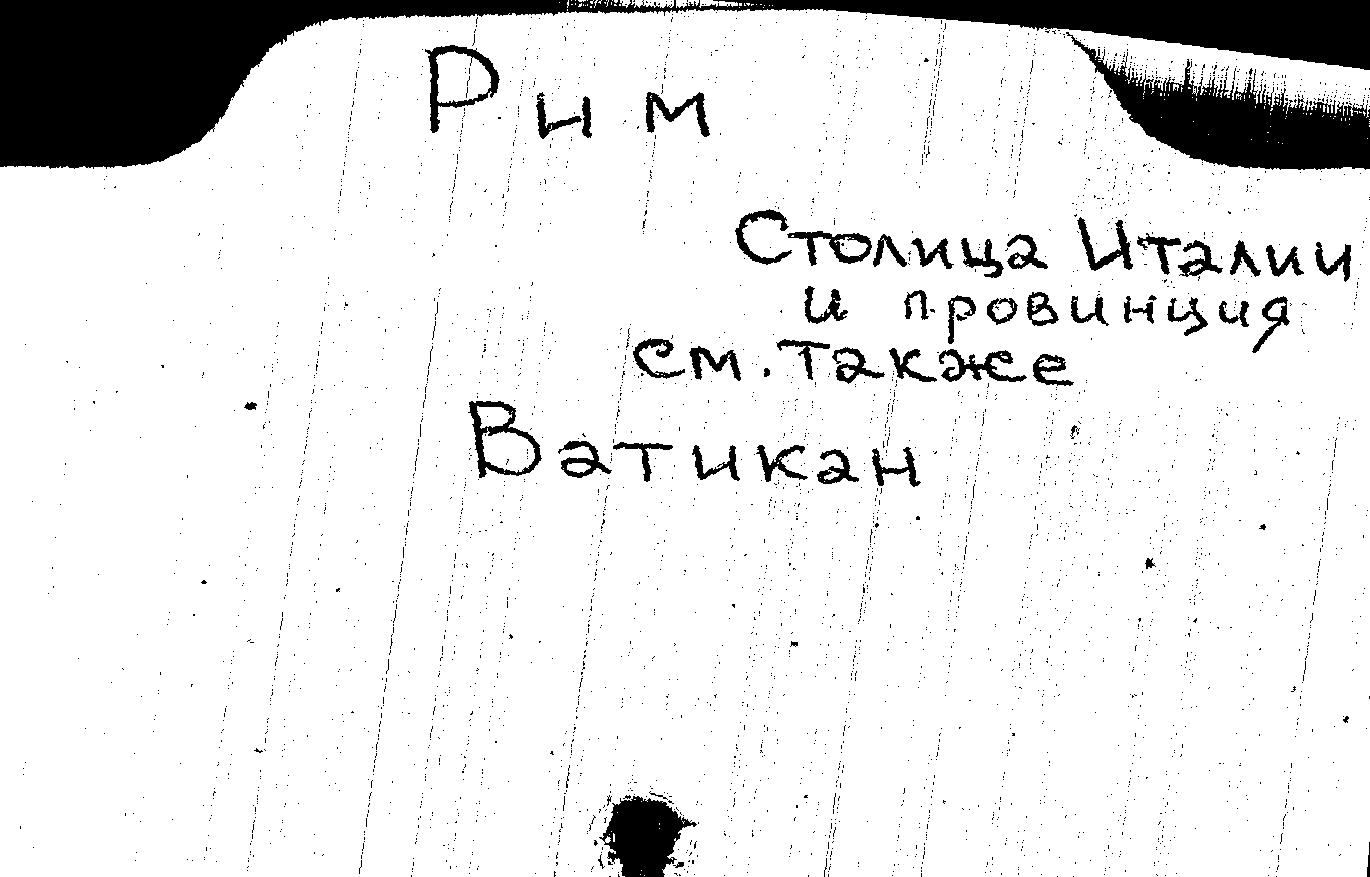 Рим
Столица Италии
и провинция
см. также
Ватикан